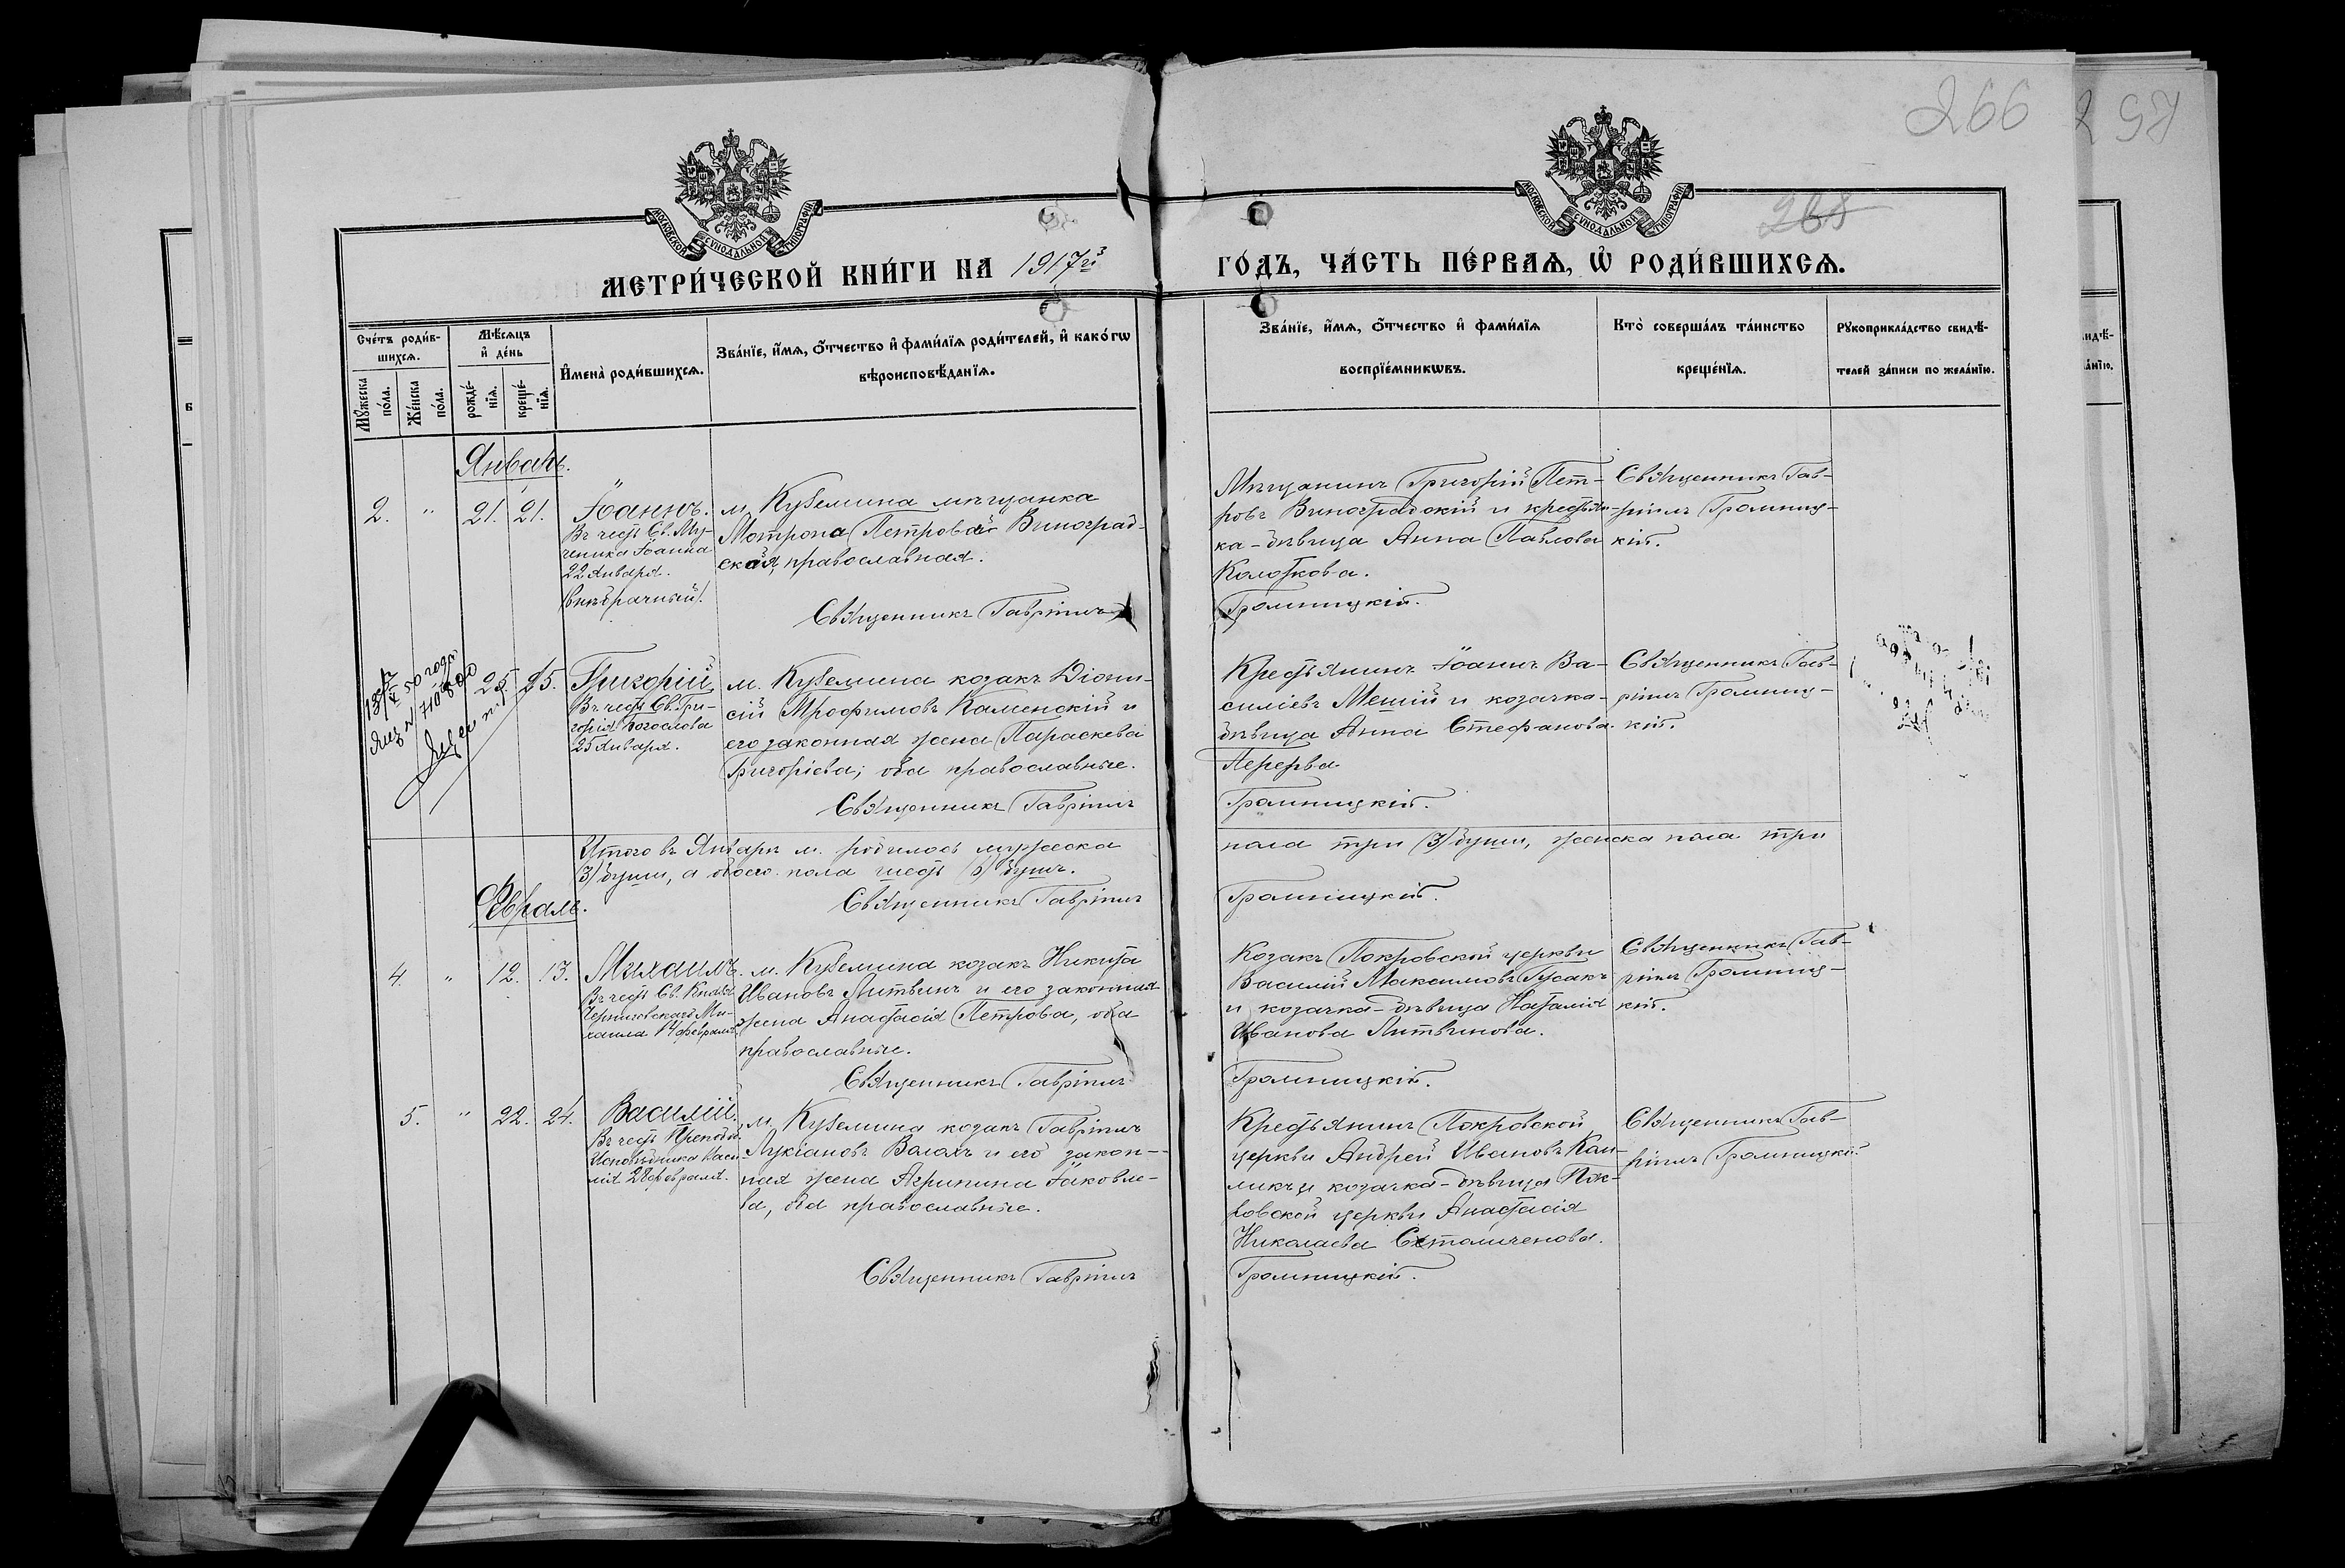 266
268
МОСКОВСКОЙ СУНОДАЛЬНОЙ ТИПОГРАФІИ
МОСКОВСКОЙ СУНОДАЛЬНОЙ ТИПОГРАФІИ
МЕТРИ́ЧЕСКОЙ КНИ́ГИ НА 1917й
ГО́ДЪ, ЧА́СТЬ ПЕ́РВАѦ, Ѡ҆ РОДИ́ВШИХСѦ.
Сче́тъ роди́в-
шихсѧ.
Мꙋ́жеска по́ла.
Же́нска по́ла.
Мѣ́сѧцъ
и҆ де́нь
рожде́-
нїѧ.
креще́-
нїѧ.
И҆мена̀ роди́вшихсѧ.
Зва́нїе, и҆́мѧ, ѻ҆́тчество и҆ фами́лїѧ роди́телей, и҆ како́гѡ
вѣроисповѣ́данїѧ.
Зва́нїе, и҆́мѧ, ѻ҆́тчество и҆ фами́лїѧ
воспрїе́мникѡвъ.
Кто̀ соверша́лъ та́инство
креще́нїѧ.
Рꙋкоприкла́дство свидѣ́-
телей за́писи по жела́нїю.
Январь.
2. " 21. 21.
Іоаннъ.
Въ честь Св. Му-
ченика Іоанна
22 января.
(внѣбрачный).
м. Куземина мѣщанка
Мотрона Петрова Виноград-
ская, православная.
Священникъ Гавріилъ
Мѣщанинъ Григорій Пет-
ровъ Виноградскій и крестьян-
ка-дѣвица Анна Павлова
Колоткова.
Громницкій.
Священникъ Гав-
ріилъ Громниц-
кій.
50 года
25. 25.
Григорій
Въ честь Св. Гри-
горія Богослова
25 января.
м. Куземина козакъ Діони-
сій Трофимовъ Каменскій и
его законная жена Параскева
Григоріева; оба православные.
Священникъ Гавріилъ
Крестьянинъ Іоаннъ Ва-
силіевъ Меший и козачка-
дѣвица Анна Стефанова
Перерва
Громницкій.
Священникъ Гав-
ріилъ Громниц-
кій.
Итого въ Январѣ м. родилось мужеска пола три (3) души, женска пола три
(3) души, а обоего пола шесть (6) душъ.
Священникъ Гавріилъ Громницкій.
Февраль.
4. " 12. 13.
Михаилъ.
Въ честь Св. Князя
Черниговскаго Ми-
хаила 14 февраля
м. Куземина козакъ Никита
Ивановъ Литвинъ и его законная
жена Анастасія Петрова, оба
православные.
Священникъ Гавріилъ
Козакъ Покровской церкви
Василій Максимовъ Гусакъ
и козачка-дѣвица Наталія
Иванова Литвинова.
Громницкій.
Священникъ Гав-
ріилъ Громниц-
кій.
5. " 22. 24.
Василій.
Въ честь Преподоб.
Исповѣдника Васи-
лія 28 февраля.
м. Куземина козакъ Гавріилъ
Лукіановъ Волохъ и его закон-
ная жена Агрипина Іаковле-
ва, оба православные.
Священникъ Гавріилъ
Крестьянинъ Покровской
церкви Андрей Ивановъ Кал-
мыкъ и козачка-дѣвица Пок-
ровской церкви Анастасія
Николаева
Громницкій.
Священникъ Гав-
ріилъ Громницкій